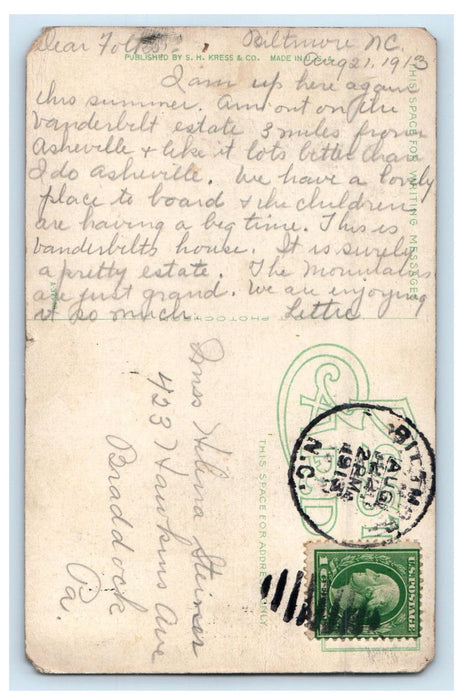 Dear Folks:- Biltmore NC.
PUBLISHED BY S. H. KRESS & CO. MADE IN U.S.A.
Aug 21, 1913
I am up here again
this summer. Am out on the
Vanderbilt estate 3 miles from
Asheville & like it lots better than
I do Asheville. We have a lovely
place to board & the children
are having a big time. This is
Vanderbilts house. It is surely
a pretty estate. The Mountains
are just grand. We are enjoying
it so much. Lettie
THIS SPACE FOR WRITING MESSAGES
POST
CARD
THIS SPACE FOR ADDRESS ONLY
Miss Helena Steiner
423 Hawkins Ave
Braddock
Pa.
BILTMORE
AUG
2 PM
1913
N.C.
U.S. POSTAGE
1